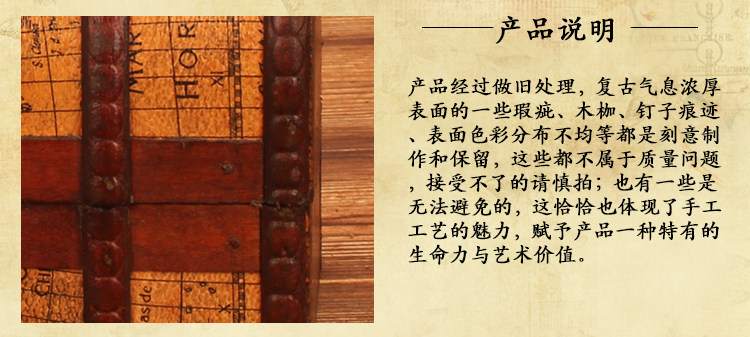 产品说明
产品经过做旧处理，复古气息浓厚
表面的一些瑕疵、木枷、钉子痕迹
、表面色彩分布不均等都是刻意制
作和保留，这些都不属于质量问题
，接受不了的请慎拍；也有一些是
无法避免的，这恰恰也体现了手工
工艺的魅力，赋予产品一种特有的
生命力与艺术价值。
MAR
HOR
CH
as de